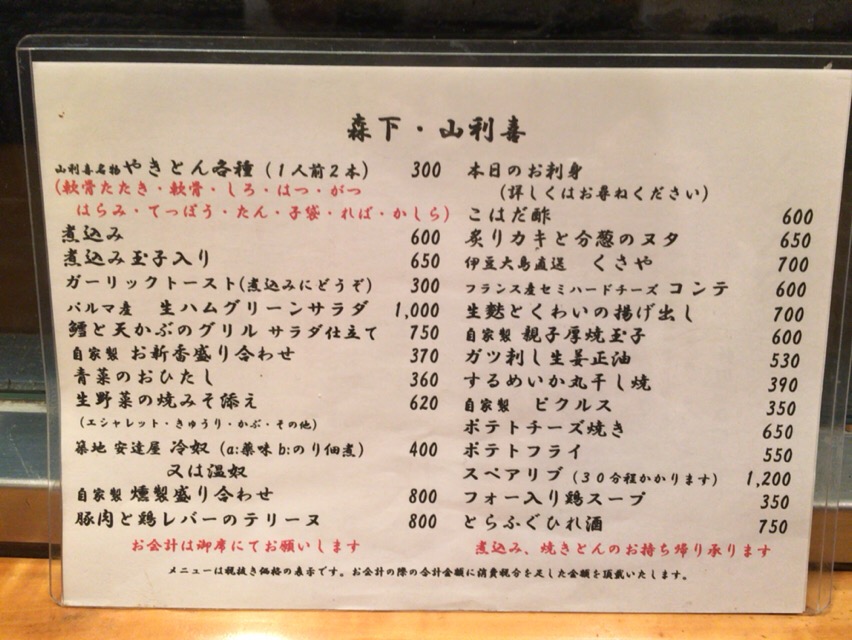 森下・山利喜
山利喜名物やきとん各種(1人前2本) 300
(軟骨たたき・軟骨・しろ・はつ・がつ
はらみ・てっぽう・たん・子袋・ればー・かしら)
煮込み 600
煮込み玉子入り 650
ガーリックトースト(煮込みにどうぞ) 300
パルマ産 生ハムグリーンサラダ 1,000
鱈と天かぶのグリル サラダ仕立て 750
自家製 お新香盛り合わせ 370
青菜のおひたし 360
生野菜の焼みそ添え 620
(エシャレット・きゅうり・かぶ・その他)
築地 安達屋 冷奴(a:薬味 b:のり佃煮) 400
又は温奴
自家製 燻製盛り合わせ 800
豚肉と鶏レバーのテリーヌ 800
お会計は御席にてお願いします
本日のお刺身
(詳しくはお尋ねください)
こはだ酢 600
炙りカキと分葱のヌタ 650
伊豆大島直送 くさや 700
フランス産セミハードチーズ コンテ 600
生麩とくわいの揚げ出し 700
自家製 親子厚焼玉子 600
ガツ刺し生姜正油 530
するめいか丸干し焼 390
自家製 ピクルス 350
ポテトチーズ焼き 650
ポテトフライ 550
スペアリブ(30分程かかります) 1,200
フォー入り鶏スープ 350
とらふぐひれ酒 750
煮込み、焼きとんのお持ち帰り承ります
メニューは税抜き価格の表示です。お会計の際の合計金額に消費税分を足した金額を頂戴いたします。